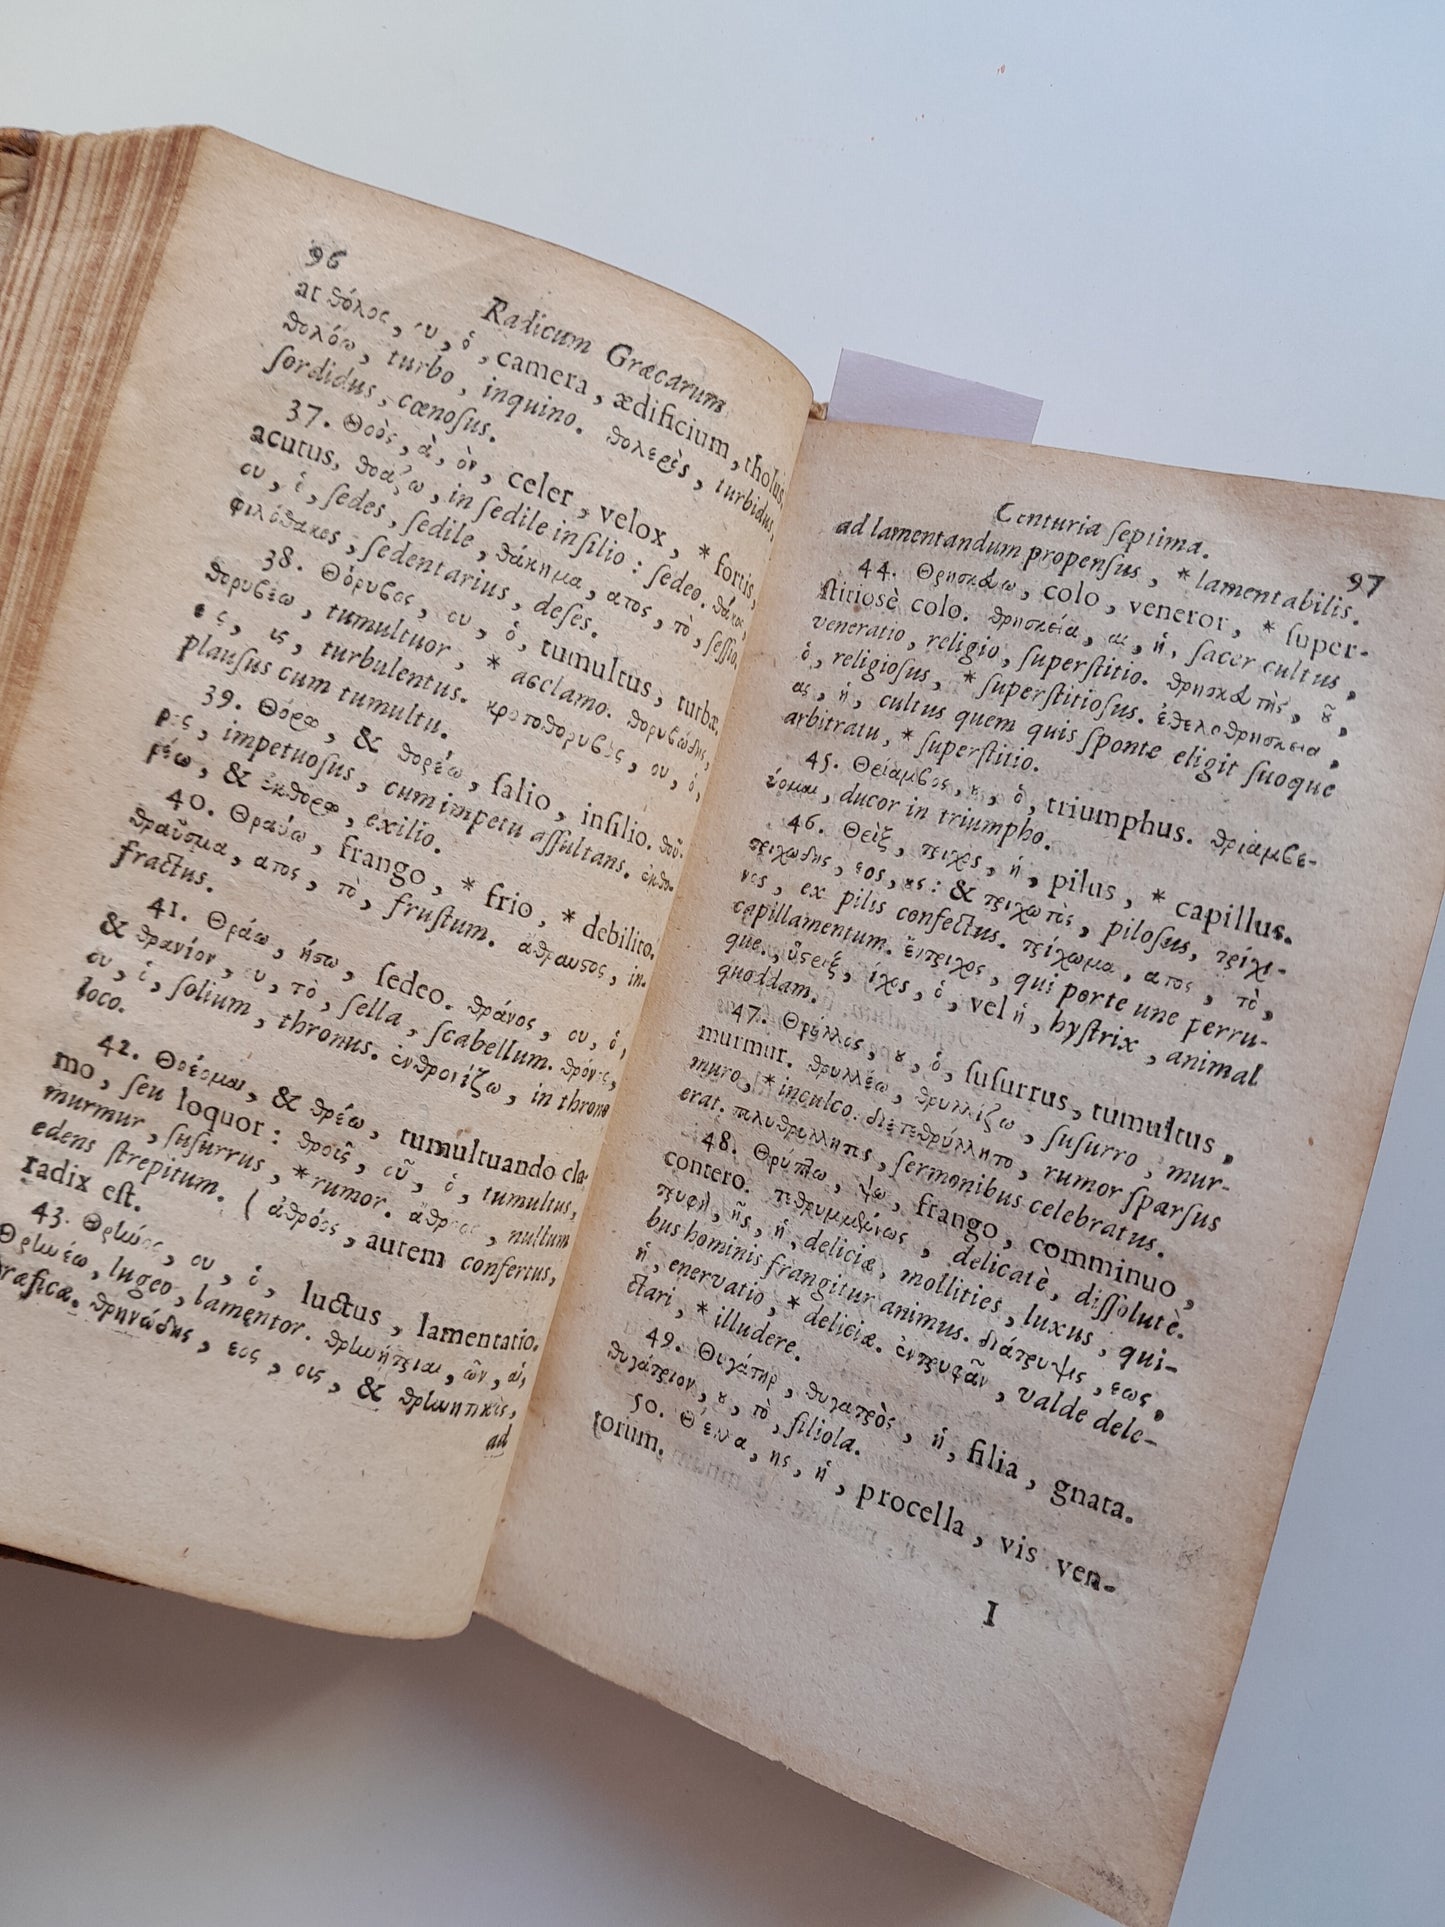 96
Radicum Græcarum
at θόλος, ου, ὁ, camera, ædificium, tholus,
θολόω, turbo, inquino. θολερὸς, turbidus,
ſordidus, cœnoſus.
37. Θοὸς, ὰ, ὸν, celer, velox, * fortis,
acutus, θοάζω, in ſedile inſilio: ſedeo. θάκος,
ου, ὁ, ſedes, ſedile, θάκημα, ατος, τὸ, ſeſſio,
φιλόθακος, ſedentarius, deſes.
38. Θόρυβος, ου, ὁ, tumultus, turba,
θορυβέω, tumultuor, * acclamo. θορυβώδης,
ες, turbulentus. κροτοθόρυβος, ου, ὁ,
plauſus cum tumultu.
39. Θόρω, & θορέω, ſalio, inſilio. θοῦ-
ρος, impetuoſus, cum impetu aſſultans. ἐκθο-
ρέω, & ἐκθόρω, exilio.
40. Θραύω, frango, * frio, * debilito.
θραῦσμα, ατος, τὸ, fruſtum. ἄθραυστος, in-
fractus.
41. Θράω, ήσω, ſedeo. θράνος, ου, ὁ,
& θρανίον, ου, τὸ, ſella, ſcabellum. θρόνος,
ου, ὁ, ſolium, thronus. ἐνθρονίζω, in throno
loco.
42. Θρέομαι, & θρέω, tumultuando cla-
mo, ſeu loquor: θροῦς, οῦ, ὁ, tumultus,
murmur, ſuſurrus, * rumor. ἄθροος, nullum
edens ſtrepitum. ( ἀθρόος, autem confertus,
radix eſt.
43. Θρῆνος, ου, ὁ, luctus, lamentatio.
Θρηνέω, lugeo, lamentor. θρηνήτριαι, ῶν, αἱ,
præficæ. θρηνώδης, εος, ους, & θρηνητικὸς,
ad
Centuria ſeptima.
97
ad lamentandum propenſus, * lamentabilis.
44. Θρησκεύω, colo, veneror, * ſuper-
ſtitiosè colo. θρησκεία, ας, ἡ, ſacer cultus,
veneratio, religio, ſuperſtitio. θρησκευτὴς, οῦ,
ὁ, religioſus, * ſuperſtitioſus. ἐθελοθρησκεία,
ας, ἡ, cultus quem quis ſponte eligit ſuoque
arbitratu, * ſuperſtitio.
45. Θρίαμβος, ου, ὁ, triumphus. θριαμβεύ-
ομαι, ducor in triumpho.
46. Θρὶξ, τριχος, ἡ, pilus, * capillus.
τριχώδης, εος, ους: & τριχωτὸς, piloſus, τρίχι-
νος, ex pilis confectus. τρίχωμα, ατος, τὸ,
capillamentum. ἔντριχος, qui porte une perru-
que. ὕστριξ, ίχος, ὁ, vel ἡ, hyſtrix, animal
quoddam.
47. Θρύλλος, ου, ὁ, ſuſurrus, tumultus,
murmur. θρυλλέω, θρυλλίζω, ſuſurro, mur-
muro, * inculco. διετεθρύλλητο, rumor ſparſus
erat. πολυθρύλλητος, ſermonibus celebratus.
48. Θρύπτω, ψω, frango, comminuo,
contero. τεθρυμμένως, delicatè, diſſolutè.
τρυφὴ, ῆς, ἡ, deliciæ, mollities, luxus, qui-
bus hominis frangitur animus. διάτρυψις, εως,
ἡ, enervatio, * deliciæ. ἐντρυφᾶν, valde dele-
ctari, * illudere.
49. Θυγάτηρ, θυγατρὸς, ἡ, filia, gnata.
θυγάτριον, ου, τὸ, filiola.
50. Θύελλα, ης, ἡ, procella, vis ven-
torum.
I